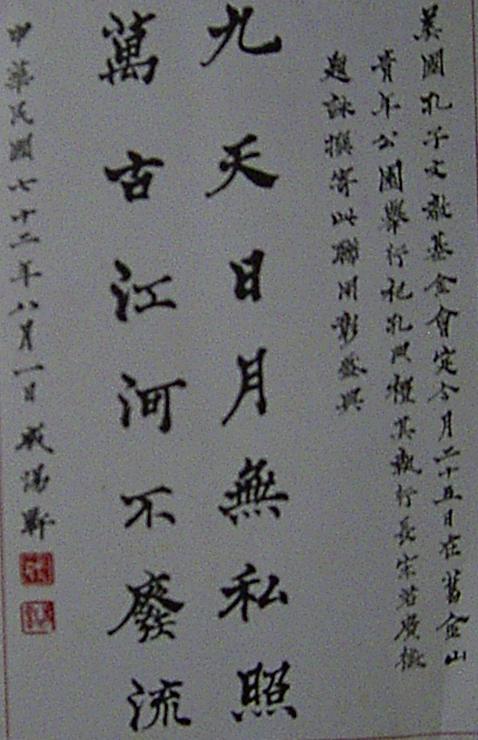 美國孔子文教基金會定今月二十五日在舊金山
青年公園舉行祀孔典禮其執行長宋君廣徵
題詠撰寄此聯用彰盛典
九天日月無私照
萬古江河不廢流
中華民國七十二年八月一日 成惕軒